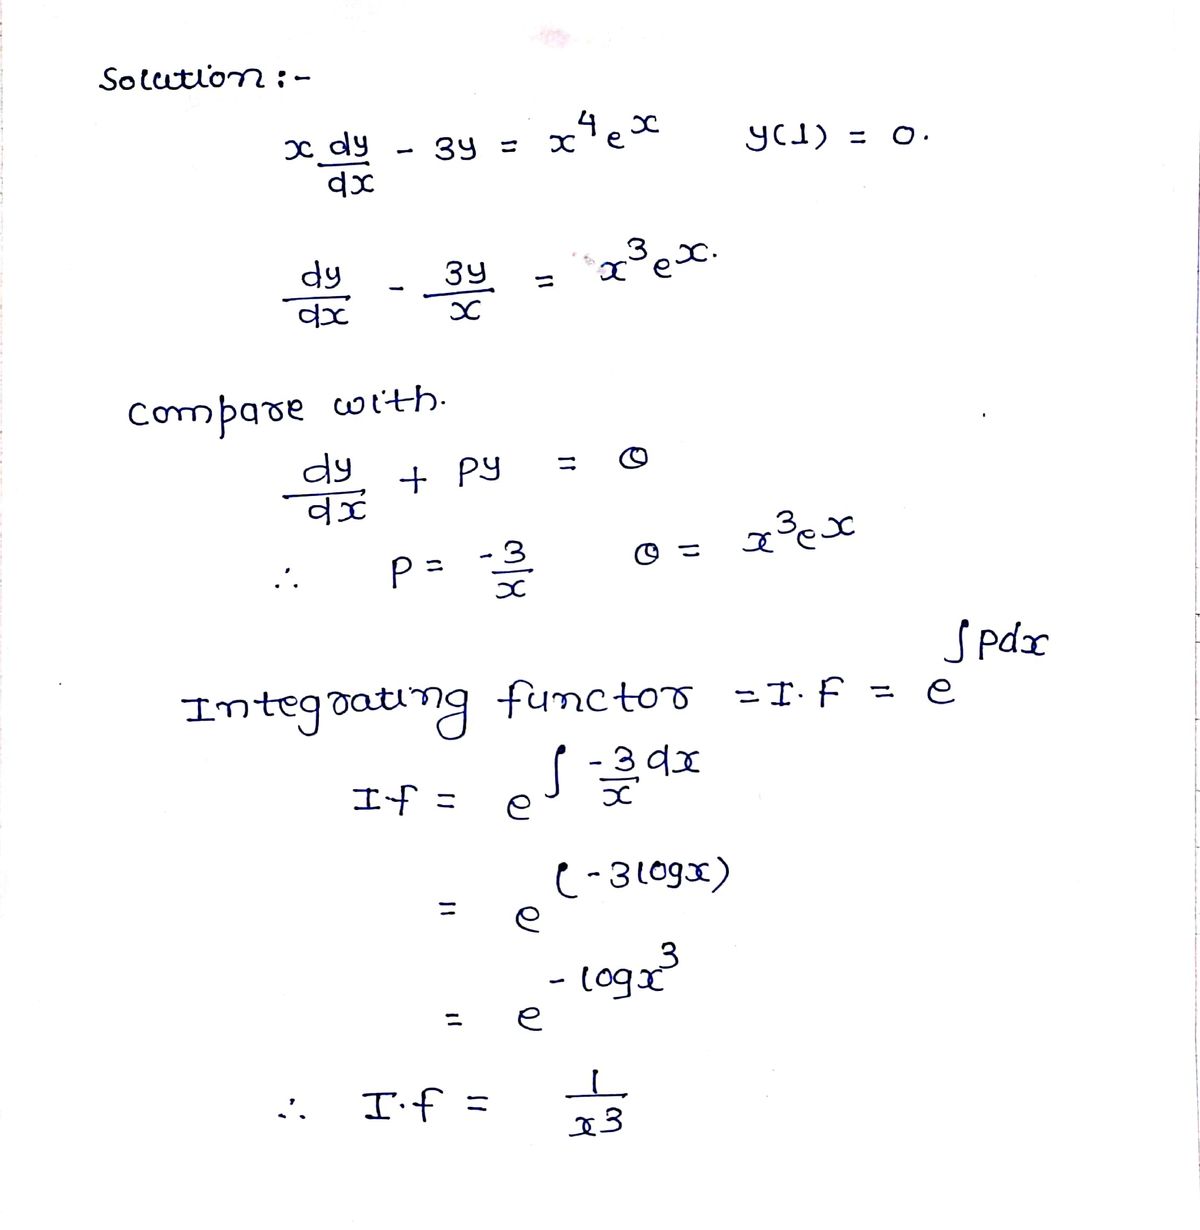 Solution :-
x dy/dx - 3y = x⁴eˣ y(1) = 0.
dy/dx - 3y/x = x³eˣ.
Compare with.
dy/dx + Py = Q
∴ P = -3/x Q = x³eˣ
Integrating functor = I.F = e^∫Pdx
I.f = e^∫ -3/x dx
= e^(-3logx)
= e^-logx³
∴ I.f = 1/x3